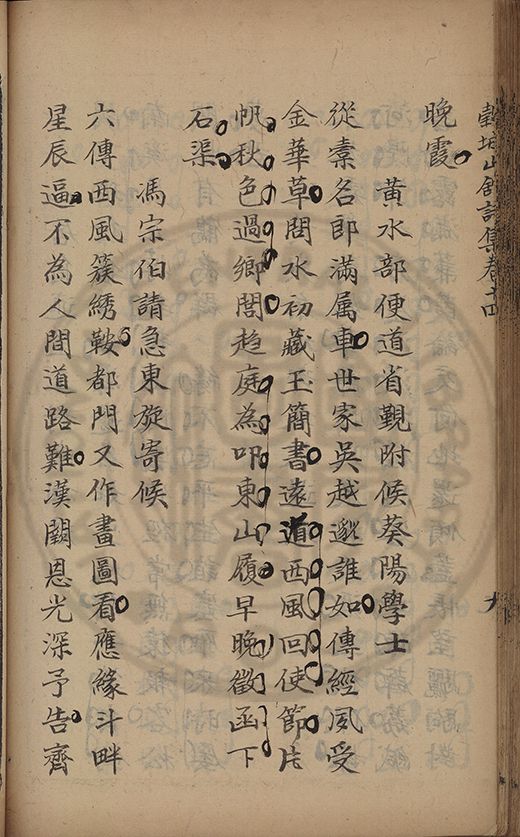 穀城山館詩集卷十四
九
晚霞
黃水部便道省覲附候葵陽學士
從橐名郎滿属車世家吳越邀誰如傳經夙受
金華草問水初藏玉簡書遠道西風回使節片
帆秋色過鄉閭趋庭為叩東山履早晚徵函下
石渠
馮宗伯請急東旋寄候
六傳西風簇綉鞍都門又作畫圖看應緣斗畔
星辰逼不為人間道路難漢闕恩光深予告齊